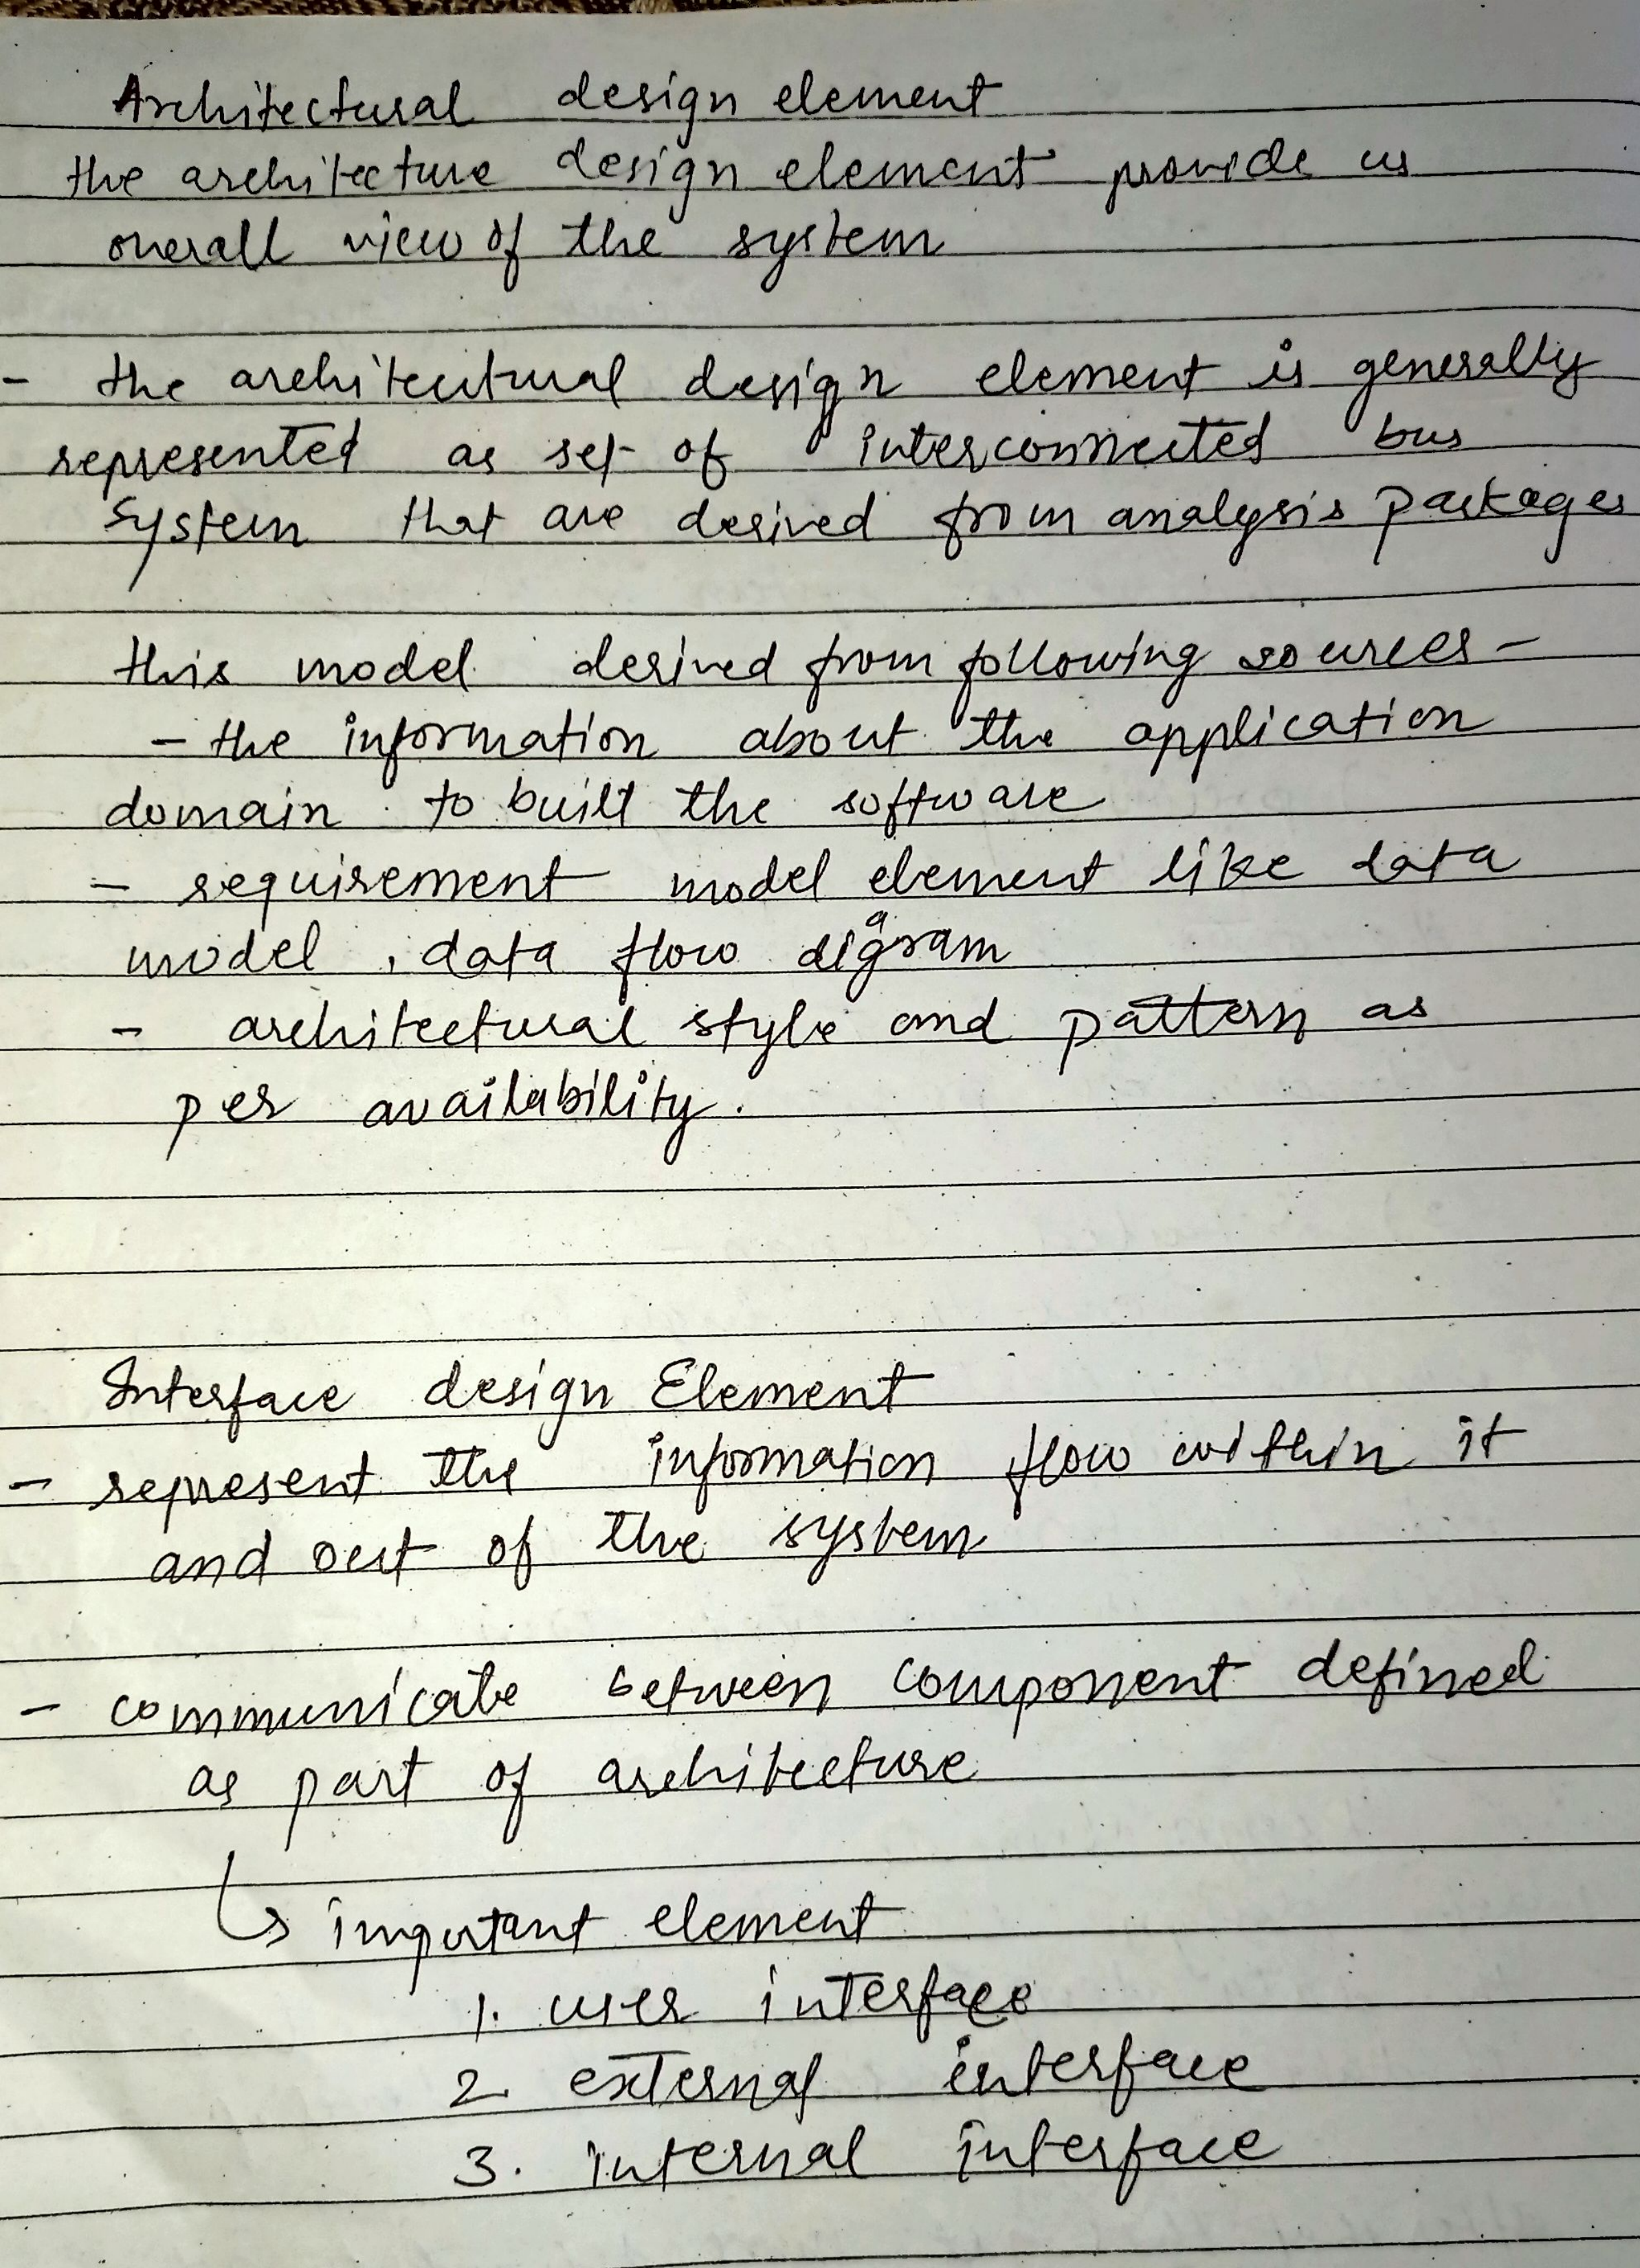 Architectural design element
the architecture design element provide us
overall view of the system
- the architectural design element is generally
represented as set of interconnected bus
system that are derived from analysis packages
this model derived from following sources -
- the information about the application
domain to built the software
- requirement model element like data
model , data flow diagram
- architectural style and pattern as
per availability.
Interface design Element
- represent the information flow within it
and out of the system
- communicate between component defined
as part of architecture
↳ important element
1. user interface
2. external interface
3. internal interface